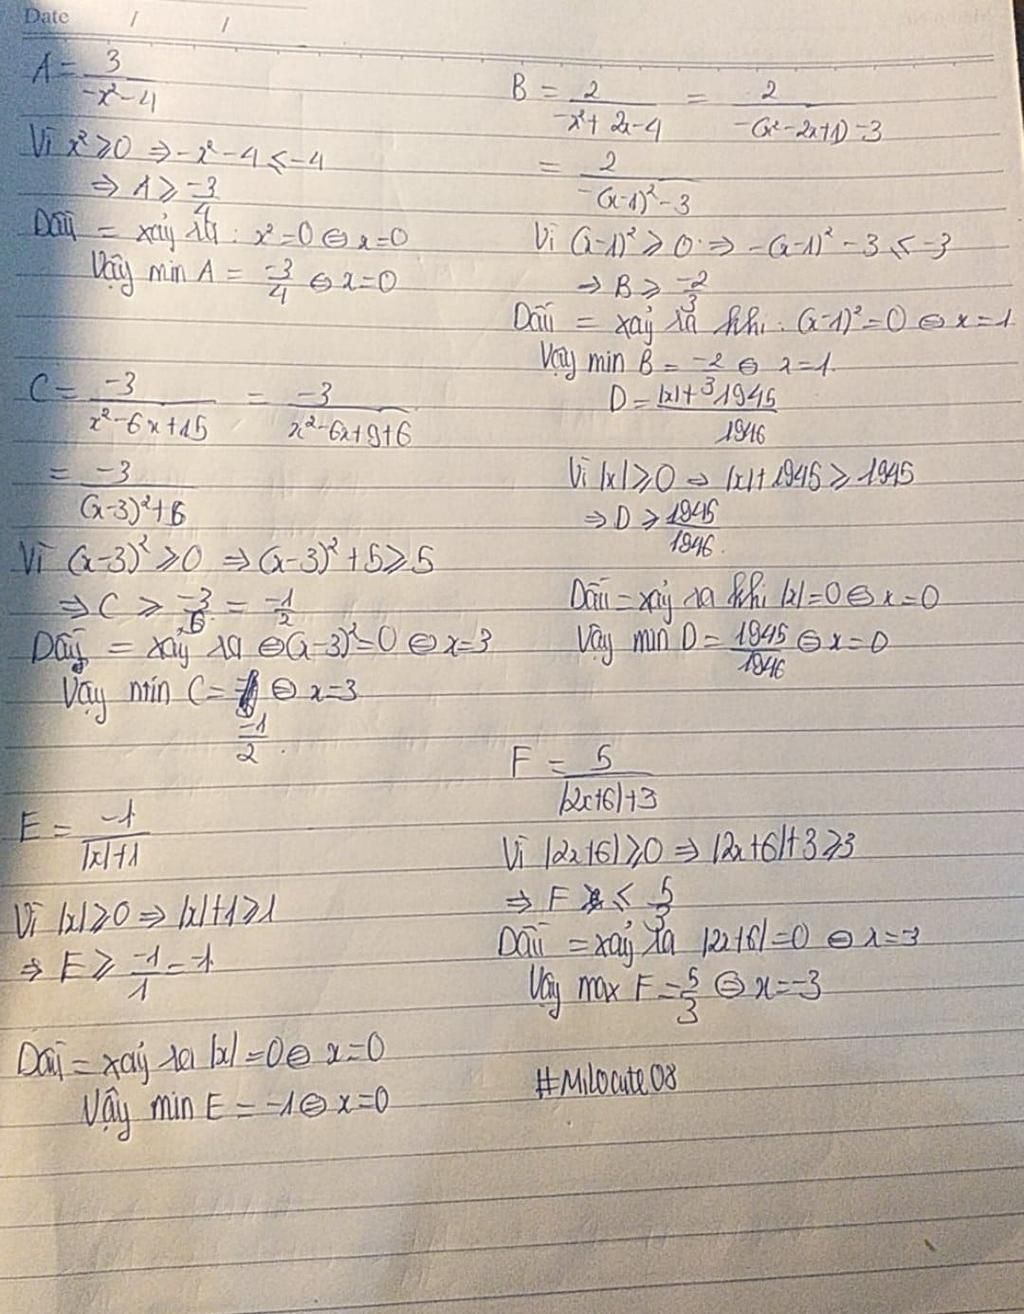 Date / /
A = 3/(-x²-4)
Vì x² ≥ 0 ⇒ -x² - 4 ≤ -4
⇒ A ≥ -3/4
Dấu = xảy ra : x² = 0 ⇔ x = 0
Vậy min A = -3/4 ⇔ x = 0
B = 2/(-x² + 2x - 4) = 2/(-(x² - 2x + 1) - 3)
= 2/(-(x-1)² - 3)
Vì (x-1)² ≥ 0 ⇒ -(x-1)² - 3 ≤ -3
⇒ B ≥ -2/3
Dấu = xảy ra khi : (x-1)² = 0 ⇔ x = 1
Vậy min B = -2/3 ⇔ x = 1.
C = -3/(x² - 6x + 15) = -3/(x² - 6x + 9 + 6)
= -3/((x-3)² + 6)
Vì (x-3)² ≥ 0 ⇒ (x-3)² + 5 ≥ 5
⇒ C ≥ -3/6 = -1/2
Dấu = xảy ra ⇔ (x-3)² = 0 ⇔ x = 3
Vậy min C = -1/2 ⇔ x = 3
D = (|x| + 1945)/1946
Vì |x| ≥ 0 ⇒ |x| + 1945 ≥ 1945
⇒ D ≥ 1945/1946.
Dấu = xảy ra khi |x| = 0 ⇔ x = 0
Vậy min D = 1945/1946 ⇔ x = 0
E = -1/(|x| + 1)
Vì |x| ≥ 0 ⇒ |x| + 1 ≥ 1
⇒ E ≥ -1/1 = -1
Dấu = xảy ra |x| = 0 ⇔ x = 0
Vậy min E = -1 ⇔ x = 0
F = 5/(|2x+6| + 3)
Vì |2x+6| ≥ 0 ⇒ |2x+6| + 3 ≥ 3
⇒ F ≤ 5/3
Dấu = xảy ra |2x+6| = 0 ⇔ x = 3
Vậy max F = 5/3 ⇔ x = -3
#Milocute08